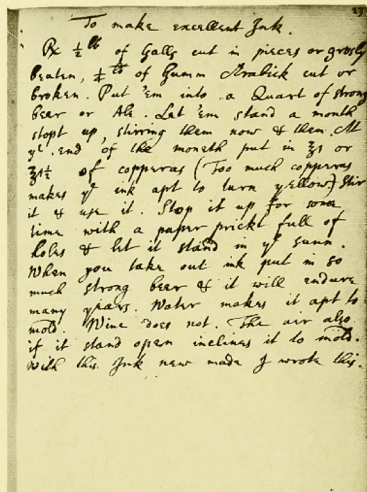 To make excellent Ink.
℞ ½ lb of Galls cut in pieces or grosly
beaten, ¼ lb of Gumm Arabick cut or
broken. Put 'em into a Quart of strong
beer or Ale. Let 'em stand a month
stopt up, stirring them now & then. At
ye end of the moneth put in ℥1 or
℥1½ of copperas (Too much copperas
makes ye ink apt to turn yellow) Stir
it & use it. Stop it up for some
time with a paper prickt full of
holes & let it stand in ye sunn.
When you take out ink put in so
much strong beer & it will endure
many years. Water makes it apt to
mold. Wine does not. The air also
if it stand open inclines it to mold.
With this Ink new made I wrote this.